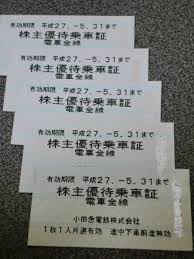 有効期限 平成27.-5.31まで
株主優待乗車証
電車全線
有効期限 平成27.-5.31まで
株主優待乗車証
電車全線
有効期限 平成27.-5.31まで
株主優待乗車証
電車全線
有効期限 平成27.-5.31まで
株主優待乗車証
電車全線
有効期限 平成27.-5.31まで
株主優待乗車証
電車全線
小田急電鉄株式会社
1枚1人片道有効 途中下車前途無効